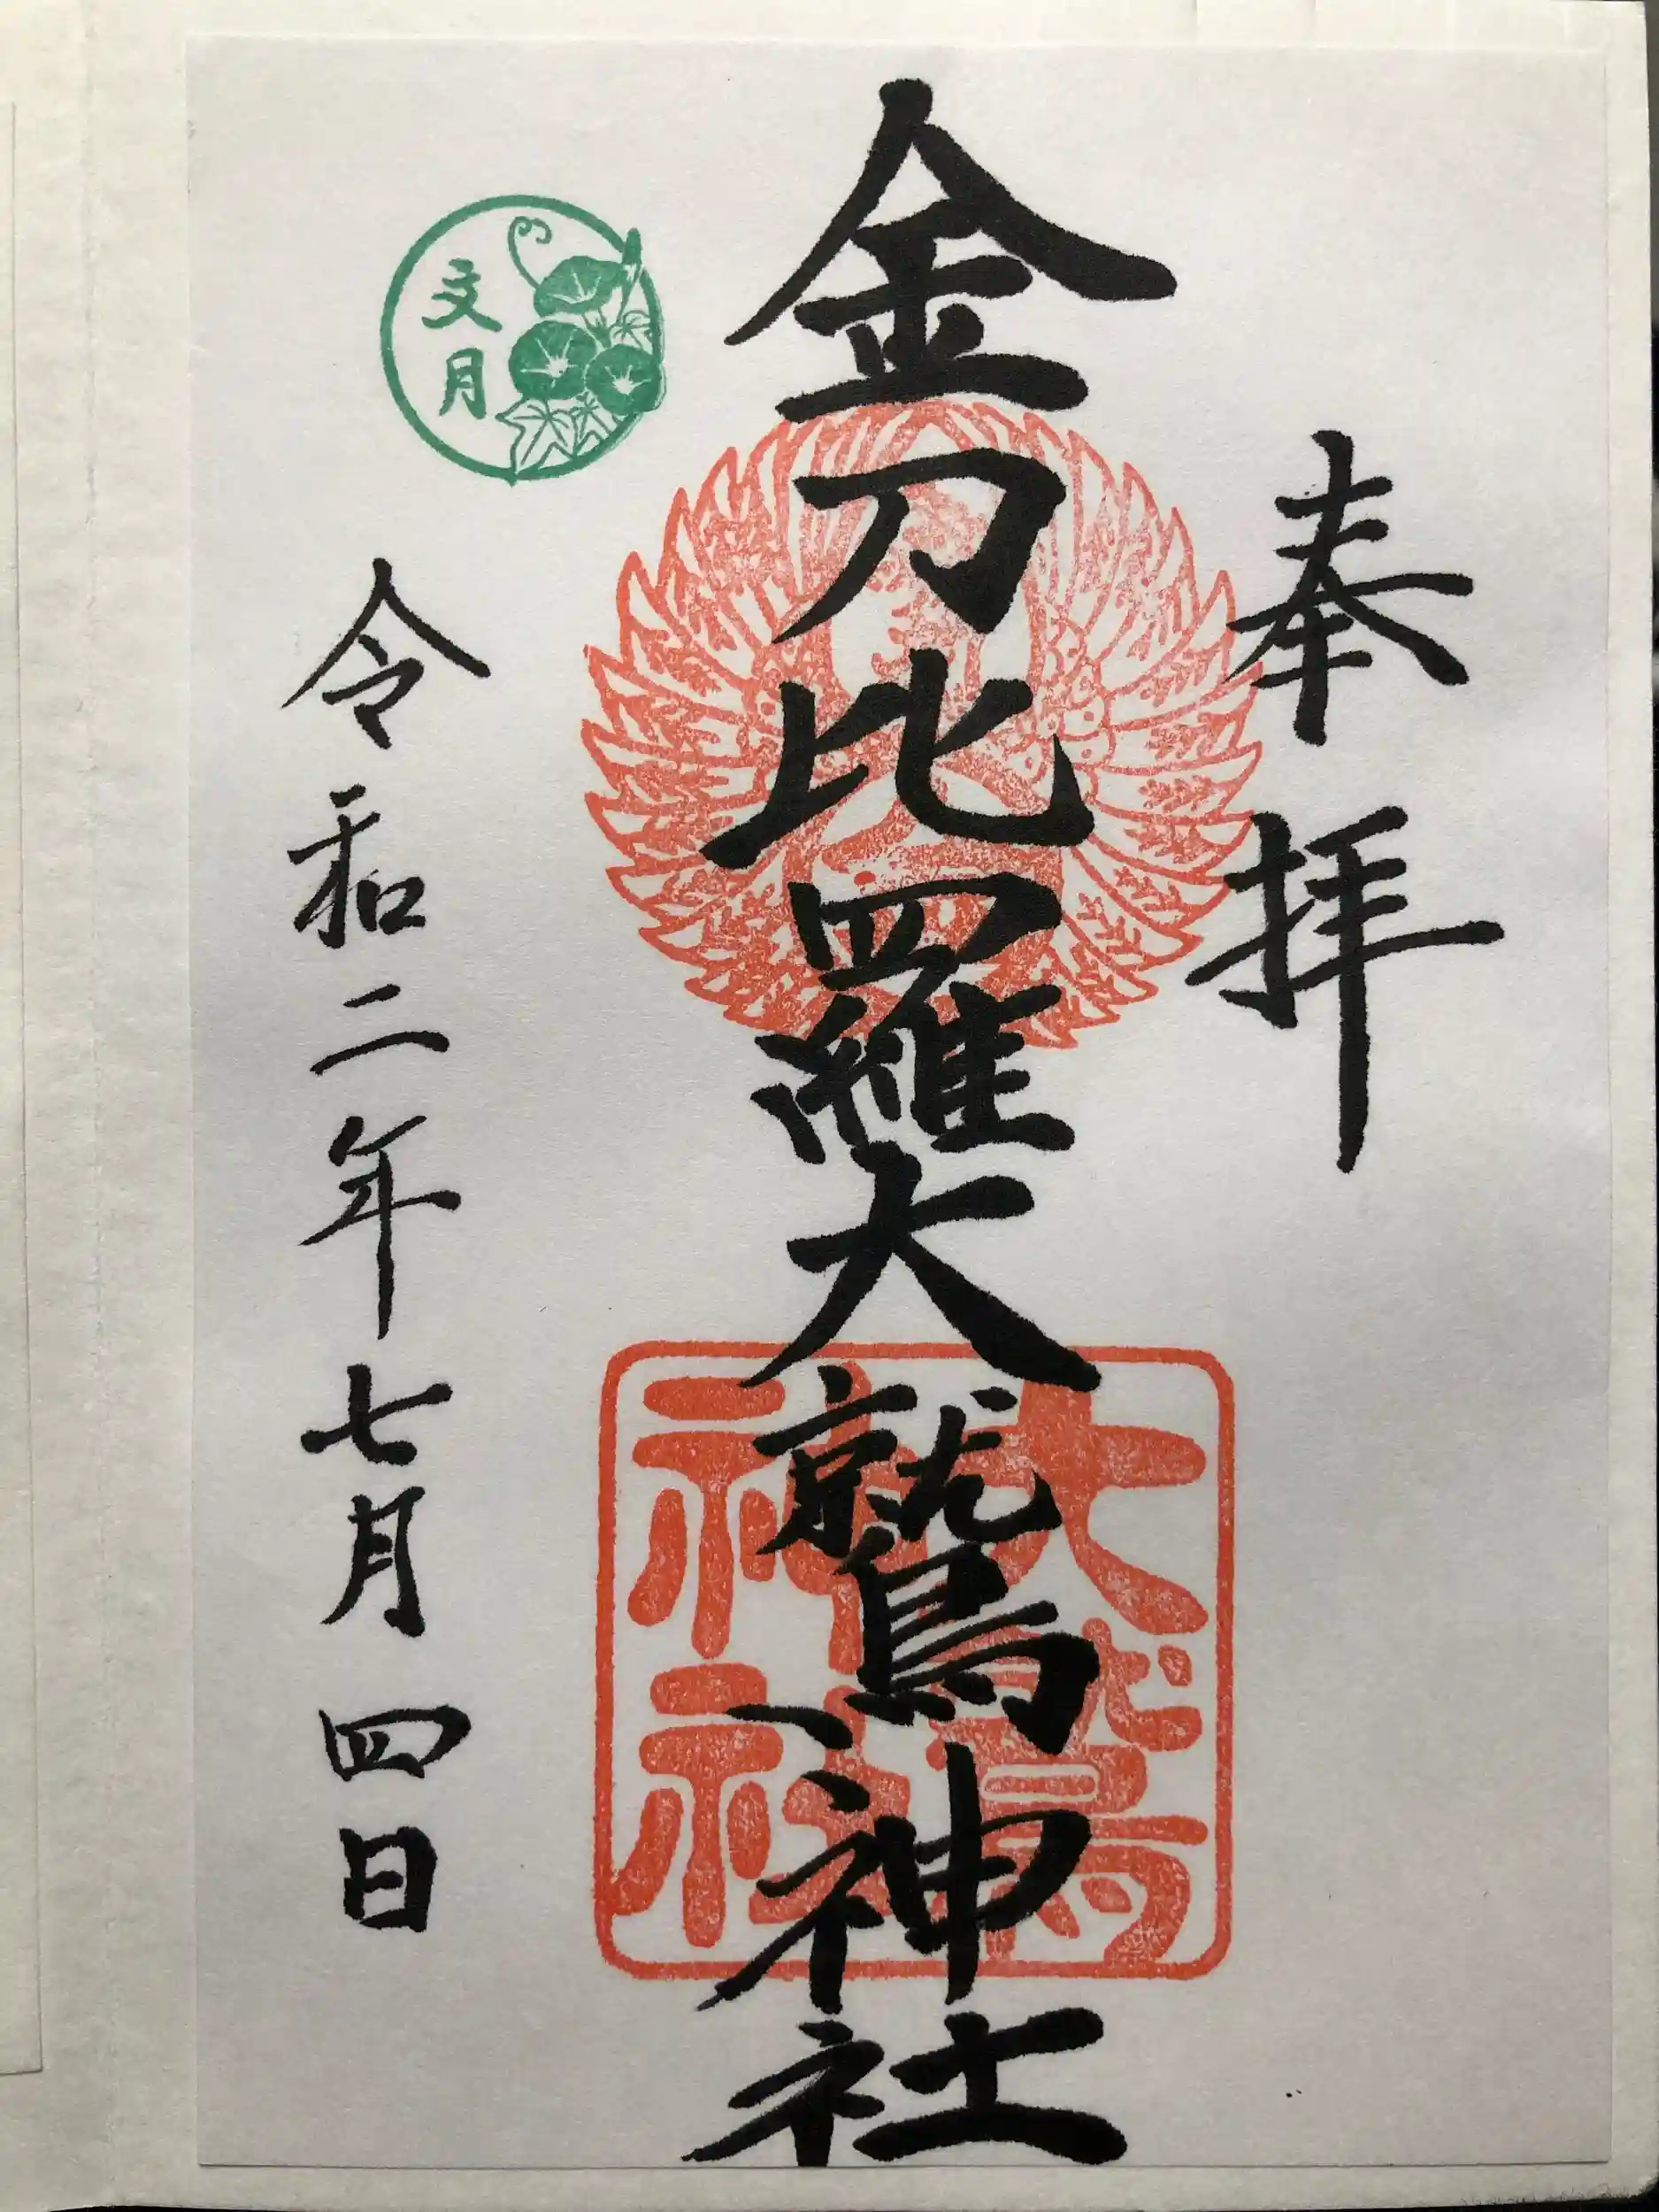 奉拝
金刀比羅大鷲神社
大鷲
神社
文月
令和二年七月四日